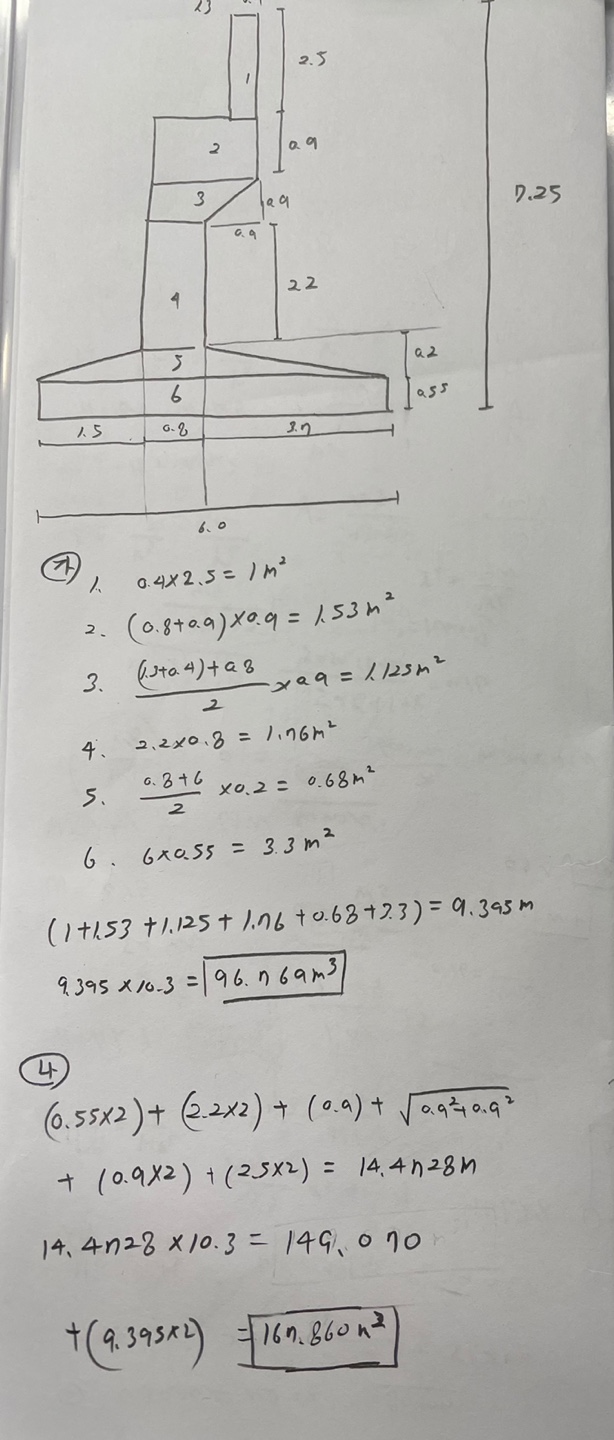 1.3
1
2.5
2
0.9
3
0.9
0.9
7.25
4
2.2
5
0.2
6
0.55
1.5 0.8 3.7
6.0
㉮ 1. 0.4×2.5 = 1m²
2. (0.8+0.9)×0.9 = 1.53m²
3. ((1.3+0.4)+0.8)/2 ×0.9 = 1.125m²
4. 2.2×0.8 = 1.76m²
5. (0.8+6)/2 ×0.2 = 0.68m²
6. 6×0.55 = 3.3m²
(1+1.53+1.125+1.76+0.68+3.3) = 9.395m
9.395×10.3 = 96.769m³
④
(0.55×2)+(2.2×2)+(0.9)+√(0.9²+0.9²)
+(0.9×2)+(2.5×2) = 14.4728m
14.4728×10.3 = 149.070
+(9.395×2) = 167.860m²